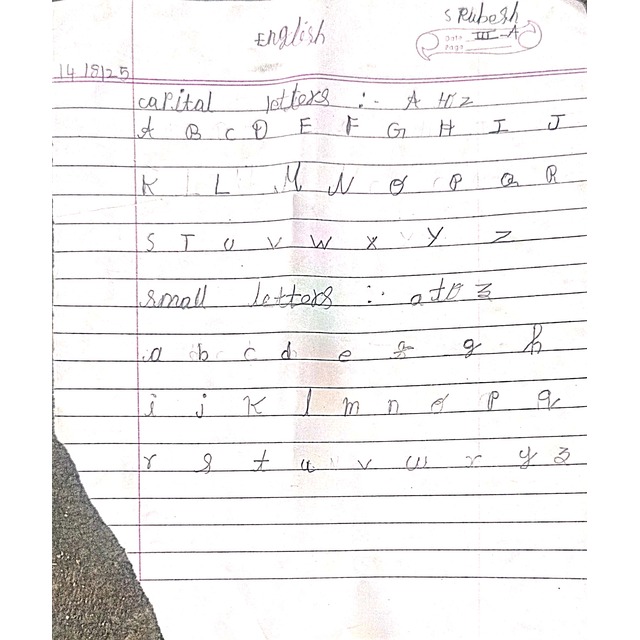 S Rubesh
English
Date III-A
Page
14/8/25
capital letters :- A to z
A B C D E F G H I J
K L M N O P Q R
S T U V W X Y Z
small letters :- a to z
a b c d e f g h
i j k l m n o p q
r s t u v w x y z